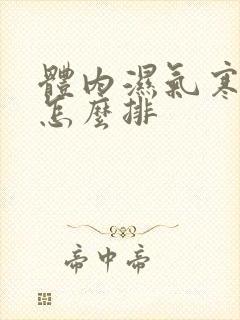 體內濕氣寒
怎麼排
帝中帝